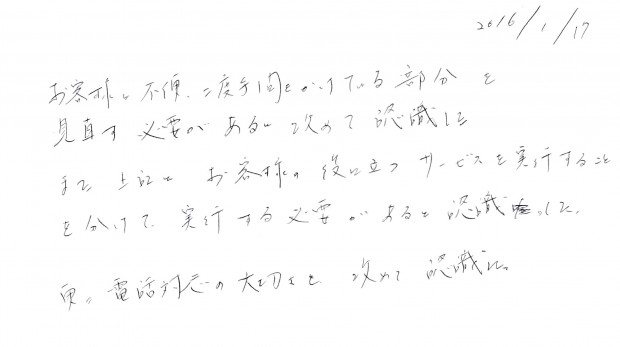 2016/1/17
お客様に不便、二度手間をかけている部分を
見直す必要があると改めて認識した
また上記とお客様の役に立つサービスを実行すること
を分けて、実行する必要があると認識した。
更に電話対応の大切さを改めて認識した。